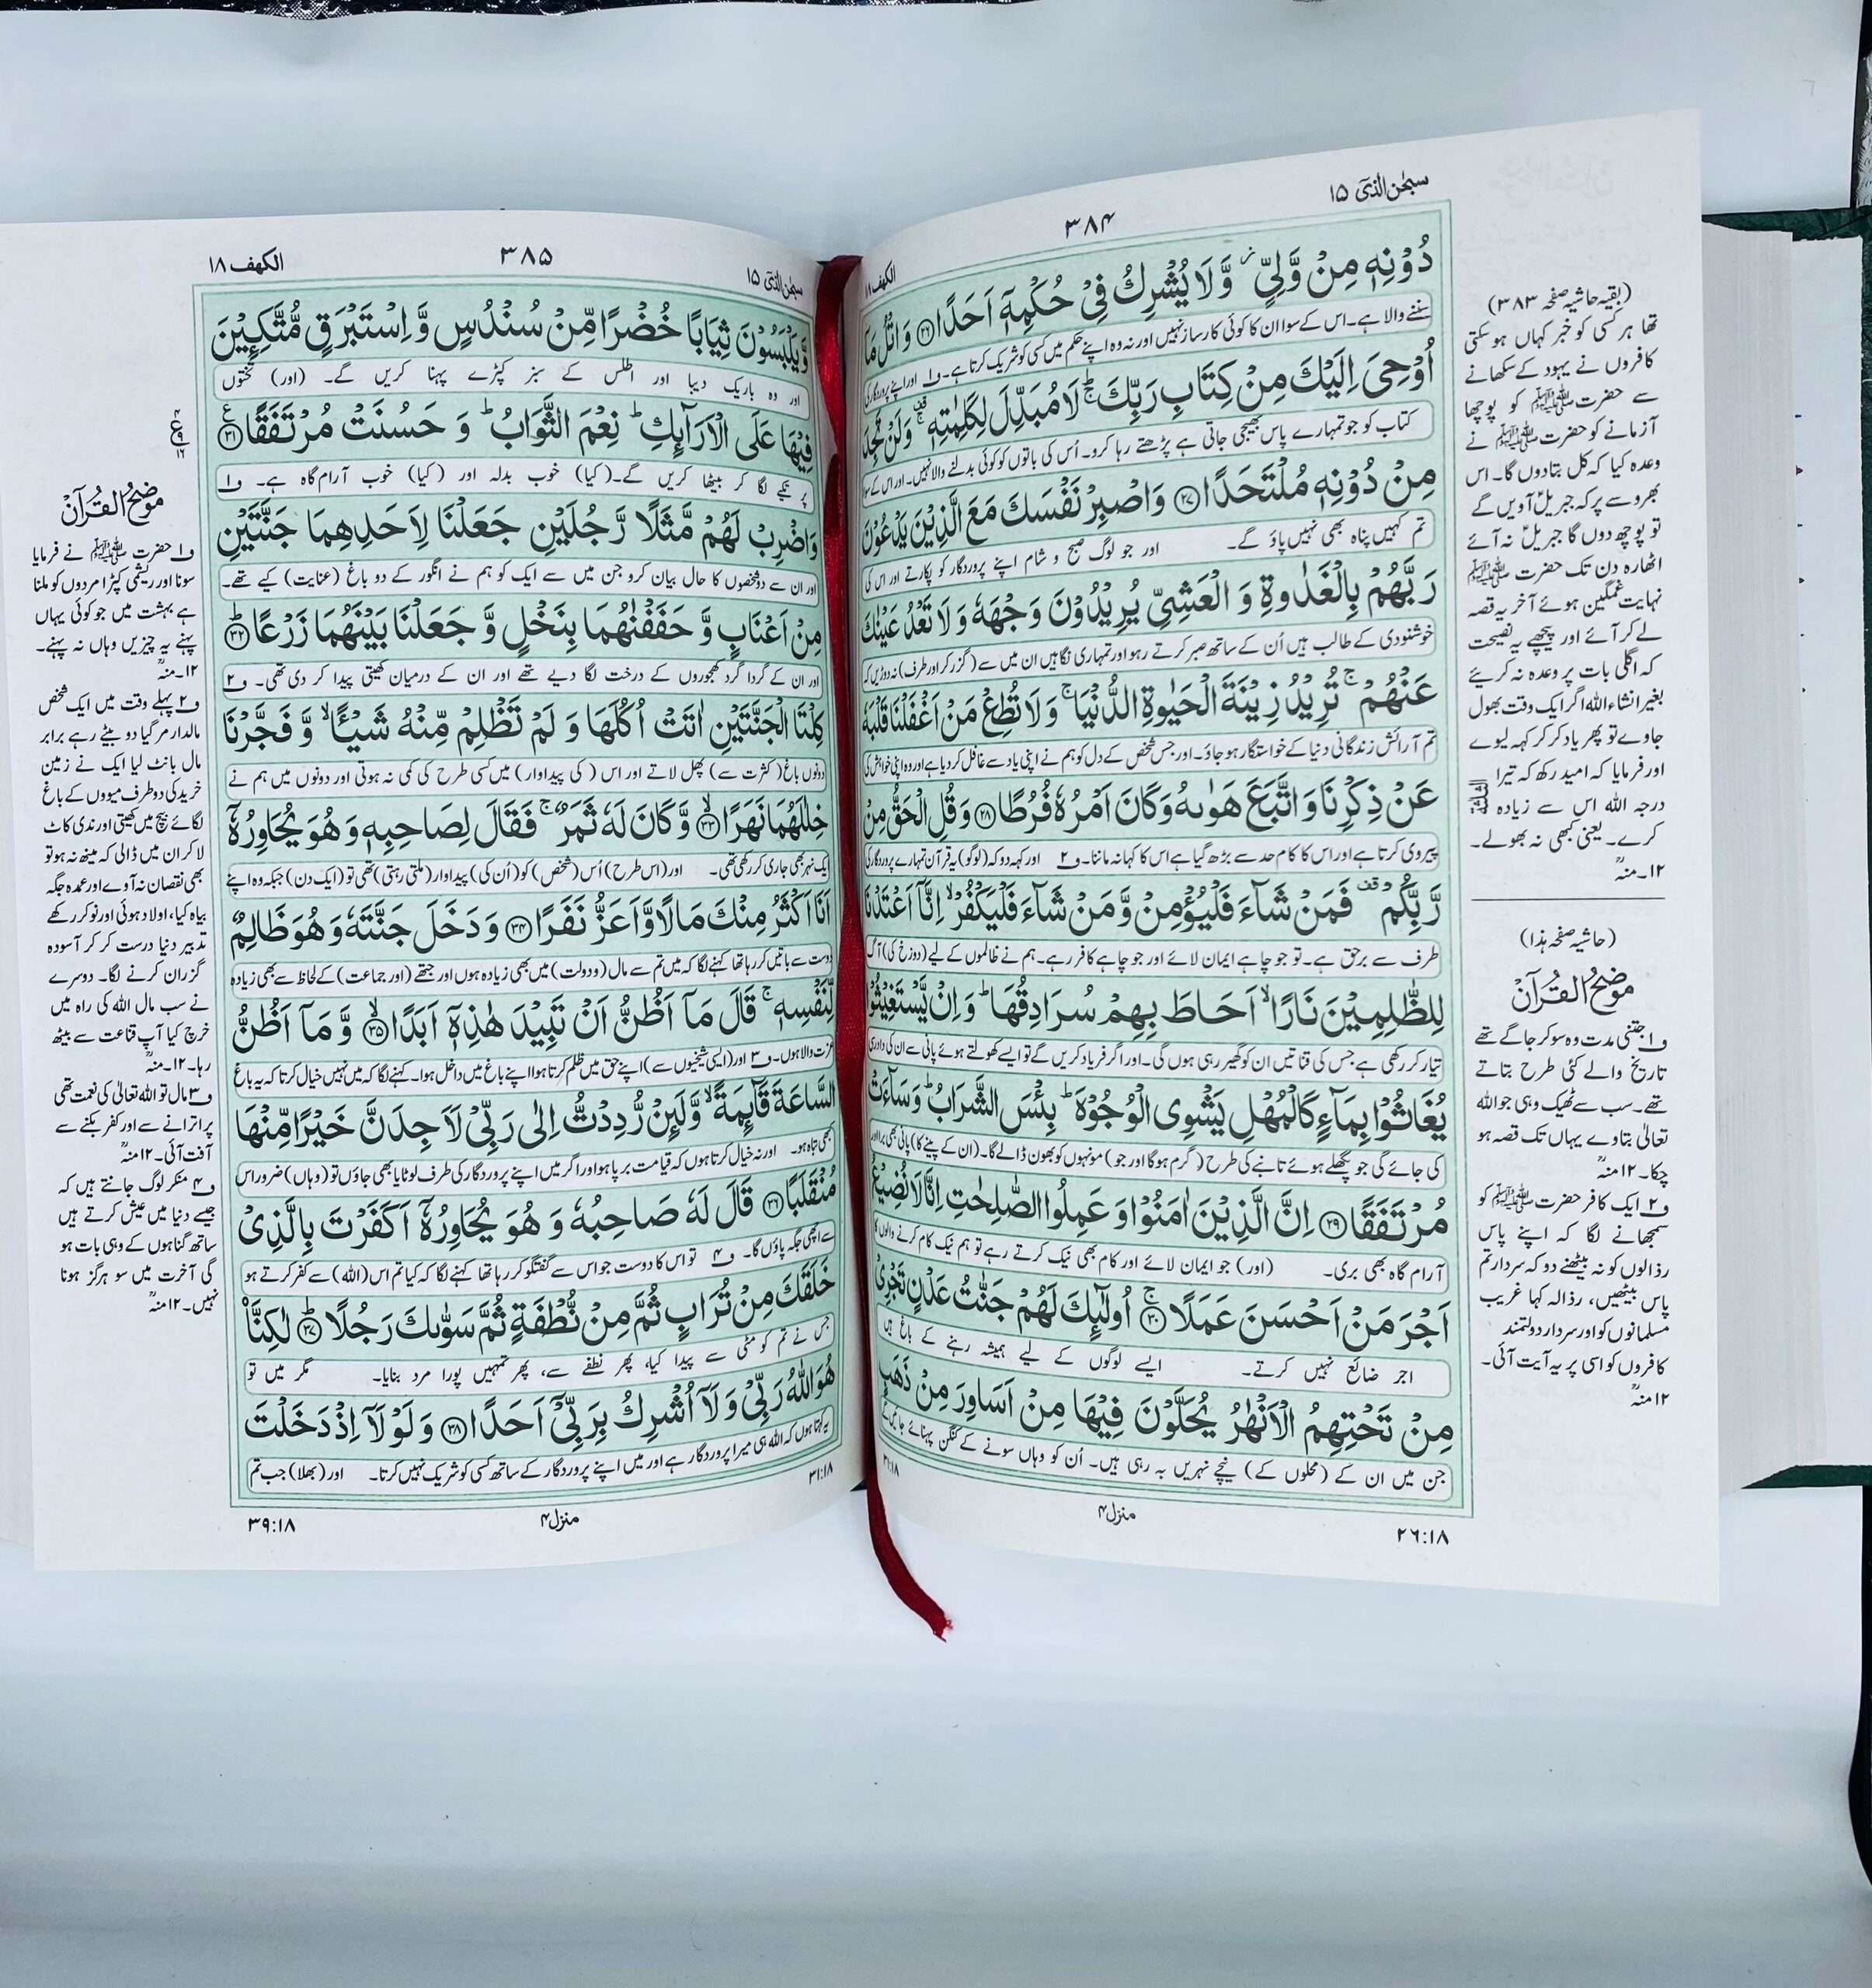 سبحٰن الذیٓ ۱۵
۳۸۴
الکھف ۱۸
دُوْنِهٖ مِنْ وَّلِیٍّ ؗ وَّلَا یُشْرِكُ فِیْ حُكْمِهٖۤ اَحَدًا ﴿۲۶﴾ وَاتْلُ مَاۤ
سننے والا ہے۔ اس کے سوا ان کا کوئی کارساز نہیں اور نہ وہ اپنے حکم میں کسی کو شریک کرتا ہے۔ ف۱ اور اپنے پروردگار کی
اُوْحِیَ اِلَیْكَ مِنْ كِتَابِ رَبِّكَ ۚ لَا مُبَدِّلَ لِكَلِمٰتِهٖ ۚ وَلَنْ تَجِدَ
کتاب کو جو تمہارے پاس بھیجی جاتی ہے پڑھتے رہا کرو۔ اُس کی باتوں کو کوئی بدلنے والا نہیں۔ اور اس کے سوا
مِنْ دُوْنِهٖ مُلْتَحَدًا ﴿۲۷﴾ وَاصْبِرْ نَفْسَكَ مَعَ الَّذِیْنَ یَدْعُوْنَ
تم کہیں پناہ بھی نہیں پاؤ گے۔ اور جو لوگ صبح و شام اپنے پروردگار کو پکارتے اور اس کی
رَبَّهُمْ بِالْغَدٰوةِ وَ الْعَشِیِّ یُرِیْدُوْنَ وَجْهَهٗ وَ لَا تَعْدُ عَیْنٰكَ
خوشنودی کے طالب ہیں اُن کے ساتھ صبر کرتے رہو اور تمہاری نگاہیں ان میں سے (گزر کر اور طرف) نہ دوڑیں کہ
عَنْهُمْ ۚ تُرِیْدُ زِیْنَةَ الْحَیٰوةِ الدُّنْیَا ۚ وَ لَا تُطِعْ مَنْ اَغْفَلْنَا قَلْبَهٗ
تم آرائشِ زندگانی دنیا کے خواستگار ہو جاؤ۔ اور جس شخص کے دل کو ہم نے اپنی یاد سے غافل کر دیا ہے اور وہ اپنی خواہش کی
عَنْ ذِكْرِنَا وَ اتَّبَعَ هَوٰىهُ وَ كَانَ اَمْرُهٗ فُرُطًا ﴿۲۸﴾ وَ قُلِ الْحَقُّ مِنْ
پیروی کرتا ہے اور اس کا کام حد سے بڑھ گیا ہے اس کا کہا نہ ماننا۔ ف۲ اور کہہ دو کہ (لوگو) یہ قرآن تمہارے پروردگار کی
رَّبِّكُمْ ۫ فَمَنْ شَآءَ فَلْیُؤْمِنْ وَّ مَنْ شَآءَ فَلْیَكْفُرْ ۙ اِنَّاۤ اَعْتَدْنَا
طرف سے برحق ہے۔ تو جو چاہے ایمان لائے اور جو چاہے کافر رہے۔ ہم نے ظالموں کے لیے (دوزخ کی) آگ
لِلظّٰلِمِیْنَ نَارًا ۙ اَحَاطَ بِهِمْ سُرَادِقُهَا ؕ وَ اِنْ یَّسْتَغِیْثُوْا
تیار کر رکھی ہے جس کی قناتیں ان کو گھیر رہی ہوں گی۔ اور اگر فریاد کریں گے تو ایسے کھولتے ہوئے پانی سے ان کی دادرسی
یُغَاثُوْا بِمَآءٍ كَالْمُهْلِ یَشْوِی الْوُجُوْهَ ؕ بِئْسَ الشَّرَابُ ؕ وَ سَآءَتْ
کی جائے گی جو پگھلے ہوئے تانبے کی طرح (گرم ہوگا اور جو) مونہوں کو بھون ڈالے گا۔ (ان کے پینے کا) پانی بھی برا اور
مُرْتَفَقًا ﴿۲۹﴾ اِنَّ الَّذِیْنَ اٰمَنُوْا وَ عَمِلُوا الصّٰلِحٰتِ اِنَّا لَا نُضِیْعُ
آرام گاہ بھی بری۔ (اور) جو ایمان لائے اور کام بھی نیک کرتے رہے تو ہم نیک کام کرنے والوں کا
اَجْرَ مَنْ اَحْسَنَ عَمَلًا ﴿۳۰﴾ اُولٰٓئِكَ لَهُمْ جَنّٰتُ عَدْنٍ تَجْرِیْ
اجر ضائع نہیں کرتے۔ ایسے لوگوں کے لیے ہمیشہ رہنے کے باغ ہیں
مِنْ تَحْتِهِمُ الْاَنْهٰرُ یُحَلَّوْنَ فِیْهَا مِنْ اَسَاوِرَ مِنْ ذَهَبٍ
جن میں ان کے (محلوں کے) نیچے نہریں بہ رہی ہیں۔ اُن کو وہاں سونے کے کنگن پہنائے جائیں گے
۳۱:۱۸
منزل ۴
۲۶:۱۸
(بقیہ حاشیہ صفحہ ۳۸۳)
تھا ہر کسی کو خبر کہاں ہو سکتی
کافروں نے یہود کے سکھانے
سے حضرت ﷺ کو پوچھا
آزمانے کو حضرت ﷺ نے
وعدہ کیا کہ کل بتا دوں گا۔ اس
بھروسے پر کہ جبریلؑ آویں گے
تو پوچھ دوں گا جبریلؑ نہ آئے
اٹھارہ دن تک حضرت ﷺ
نہایت غمگین ہوئے آخر یہ قصہ
لے کر آئے اور پیچھے یہ نصیحت
کہ اگلی بات پر وعدہ نہ کریئے
بغیر انشاء اللہ اگر ایک وقت بھول
جاوے تو پھر یاد کر کر کہہ لیوے
اور فرمایا کہ امید رکھ کہ تیرا
درجہ اللہ اس سے زیادہ
کرے۔ یعنی کبھی نہ بھولے۔
۱۲۔منہؒ
(حاشیہ صفحہ ہٰذا)
موضح القرآن
ف۱ جتنی مدت وہ سو کر جاگے تھے
تاریخ والے کئی طرح بتاتے
تھے۔ سب سے ٹھیک وہی جو اللہ
تعالیٰ بتاوے یہاں تک قصہ ہو
چکا۔ ۱۲ منہؒ
ف۲ ایک کافر حضرت ﷺ کو
سمجھانے لگا کہ اپنے پاس
رذالوں کو نہ بیٹھنے دو کہ سردار تم
پاس بیٹھیں، رذالہ کہا غریب
مسلمانوں کو اور سردار دولتمند
کافروں کو اسی پر یہ آیت آئی۔
۱۲ منہؒ
سبحٰن الذیٓ ۱۵
۳۸۵
الکھف ۱۸
وَّ یَلْبَسُوْنَ ثِیَابًا خُضْرًا مِّنْ سُنْدُسٍ وَّ اِسْتَبْرَقٍ مُّتَّكِـِٕیْنَ
اور وہ باریک دیبا اور اطلس کے سبز کپڑے پہنا کریں گے۔ (اور) تختوں
فِیْهَا عَلَی الْاَرَآىِٕكِ ؕ نِعْمَ الثَّوَابُ ؕ وَ حَسُنَتْ مُرْتَفَقًا ﴿۳۱﴾
پر تکیے لگا کر بیٹھا کریں گے۔ (کیا) خوب بدلہ اور (کیا) خوب آرام گاہ ہے۔ ف۱
وَاضْرِبْ لَهُمْ مَّثَلًا رَّجُلَیْنِ جَعَلْنَا لِاَحَدِهِمَا جَنَّتَیْنِ
اور ان سے دو شخصوں کا حال بیان کرو جن میں سے ایک کو ہم نے انگور کے دو باغ (عنایت) کیے تھے۔
مِنْ اَعْنَابٍ وَّ حَفَفْنٰهُمَا بِنَخْلٍ وَّ جَعَلْنَا بَیْنَهُمَا زَرْعًا ﴿ؕ۳۲﴾
اور ان کے گردا گرد کھجوروں کے درخت لگا دیے تھے اور ان کے درمیان کھیتی پیدا کر دی تھی۔ ف۲
كِلْتَا الْجَنَّتَیْنِ اٰتَتْ اُكُلَهَا وَ لَمْ تَظْلِمْ مِّنْهُ شَیْـًٔا ۙ وَّ فَجَّرْنَا
دونوں باغ (کثرت سے) پھل لاتے اور اس (کی پیداوار) میں کسی طرح کی کمی نہ ہوتی اور دونوں میں ہم نے
خِلٰلَهُمَا نَهَرًا ﴿ۙ۳۳﴾ وَّ كَانَ لَهٗ ثَمَرٌ ۚ فَقَالَ لِصَاحِبِهٖ وَ هُوَ یُحَاوِرُهٗۤ
ایک نہر بھی جاری کر رکھی تھی۔ اور (اس طرح) اُس (شخص) کو (اُن کی) پیداوار (ملتی رہتی) تھی تو (ایک دن) جبکہ وہ اپنے
اَنَا اَكْثَرُ مِنْكَ مَالًا وَّ اَعَزُّ نَفَرًا ﴿۳۴﴾ وَ دَخَلَ جَنَّتَهٗ وَ هُوَ ظَالِمٌ
دوست سے باتیں کر رہا تھا کہنے لگا کہ میں تم سے مال (و دولت) میں بھی زیادہ ہوں اور جتھے (اور جماعت) کے لحاظ سے بھی زیادہ
لِّنَفْسِهٖ ۚ قَالَ مَاۤ اَظُنُّ اَنْ تَبِیْدَ هٰذِهٖۤ اَبَدًا ﴿ۙ۳۵﴾ وَّ مَاۤ اَظُنُّ
عزت والا ہوں۔ ف۳ اور (ایسی شیخیوں سے) اپنے حق میں ظلم کرتا ہوا اپنے باغ میں داخل ہوا۔ کہنے لگا کہ میں نہیں خیال کرتا کہ یہ باغ
السَّاعَةَ قَآىِٕمَةً ۙ وَّ لَىِٕنْ رُّدِدْتُّ اِلٰی رَبِّیْ لَاَجِدَنَّ خَیْرًا مِّنْهَا
کبھی تباہ ہو۔ اور نہ خیال کرتا ہوں کہ قیامت برپا ہو اور اگر میں اپنے پروردگار کی طرف لوٹایا بھی جاؤں تو (وہاں) ضرور اس
مُنْقَلَبًا ﴿۳۶﴾ قَالَ لَهٗ صَاحِبُهٗ وَ هُوَ یُحَاوِرُهٗۤ اَكَفَرْتَ بِالَّذِیْ
سے اچھی جگہ پاؤں گا۔ ف۴ تو اس کا دوست جو اس سے گفتگو کر رہا تھا کہنے لگا کہ کیا تم اس (اللہ) سے کفر کرتے ہو
خَلَقَكَ مِنْ تُرَابٍ ثُمَّ مِنْ نُّطْفَةٍ ثُمَّ سَوّٰىكَ رَجُلًا ﴿ؕ۳۷﴾ لٰكِنَّا۠
جس نے تم کو مٹی سے پیدا کیا، پھر نطفے سے، پھر تمہیں پورا مرد بنایا۔ مگر میں تو
هُوَ اللّٰهُ رَبِّیْ وَ لَاۤ اُشْرِكُ بِرَبِّیْۤ اَحَدًا ﴿۳۸﴾ وَ لَوْ لَاۤ اِذْ دَخَلْتَ
یہ کہتا ہوں کہ اللہ ہی میرا پروردگار ہے اور میں اپنے پروردگار کے ساتھ کسی کو شریک نہیں کرتا۔ اور (بھلا) جب تم
۳۹:۱۸
منزل ۴
۳۱:۱۸
موضح القرآن
ف۱ حضرت ﷺ نے فرمایا
سونا اور ریشمی کپڑا مردوں کو ملنا
ہے بہشت میں جو کوئی یہاں
پہنے یہ چیزیں وہاں نہ پہنے۔
۱۲۔منہؒ
ف۲ پہلے وقت میں ایک شخص
مالدار مر گیا دو بیٹے رہے برابر
مال بانٹ لیا ایک نے زمین
خرید کی دو طرف میووں کے باغ
لگائے بیچ میں کھیتی اور ندی کاٹ
لا کر ان میں ڈالی کہ مینھ نہ ہو تو
بھی نقصان نہ آوے اور عمدہ جگہ
بیاہ کیا، اولاد ہوئی اور نوکر رکھے
تدبیر دنیا درست کر کر آسودہ
گزران کرنے لگا۔ دوسرے
نے سب مال اللہ کی راہ میں
خرچ کیا آپ قناعت سے بیٹھ
رہا۔ ۱۲۔منہؒ
ف۳ مال تو اللہ تعالیٰ کی نعمت تھی
پر اترانے سے اور کفر بکنے سے
آفت آئی۔ ۱۲ منہؒ
ف۴ منکر لوگ جانتے ہیں کہ
جیسے دنیا میں عیش کرتے ہیں
ساتھ گناہوں کے وہی بات ہو
گی آخرت میں سو ہرگز ہونا
نہیں۔ ۱۲ منہؒ